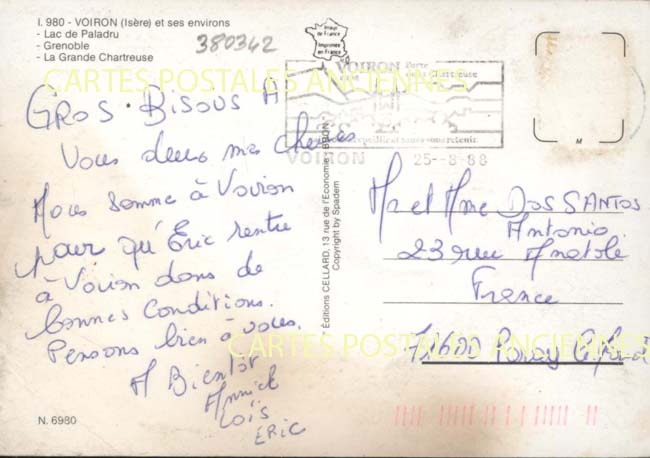 I. 980 - VOIRON (Isère) et ses environs
- Lac de Paladru
- Grenoble
- La Grande Chartreuse
380342
Imagé de France
Imprimée en France
VOIRON Porte
Chartreuse
VOIRON 25-8-88
CARTES POSTALES ANCIENNES
GROS. BISOUS A
Vous deux mes cheries
Nous somme à Voiron
pour qu'Eric rentre
à Voiron dans de
bonnes conditions.
Pensons bien à vous.
A Bientot
Annick
Loïs
ERIC
N. 6980
Éditions CELLARD, 13 rue de l'Economie - BRON
Copyright by Spadem
M
Mr et Mme DOS SANTOS
Antonio
23 rue Anatole
France
71600 Paray
CARTES POSTALES ANCIENNES